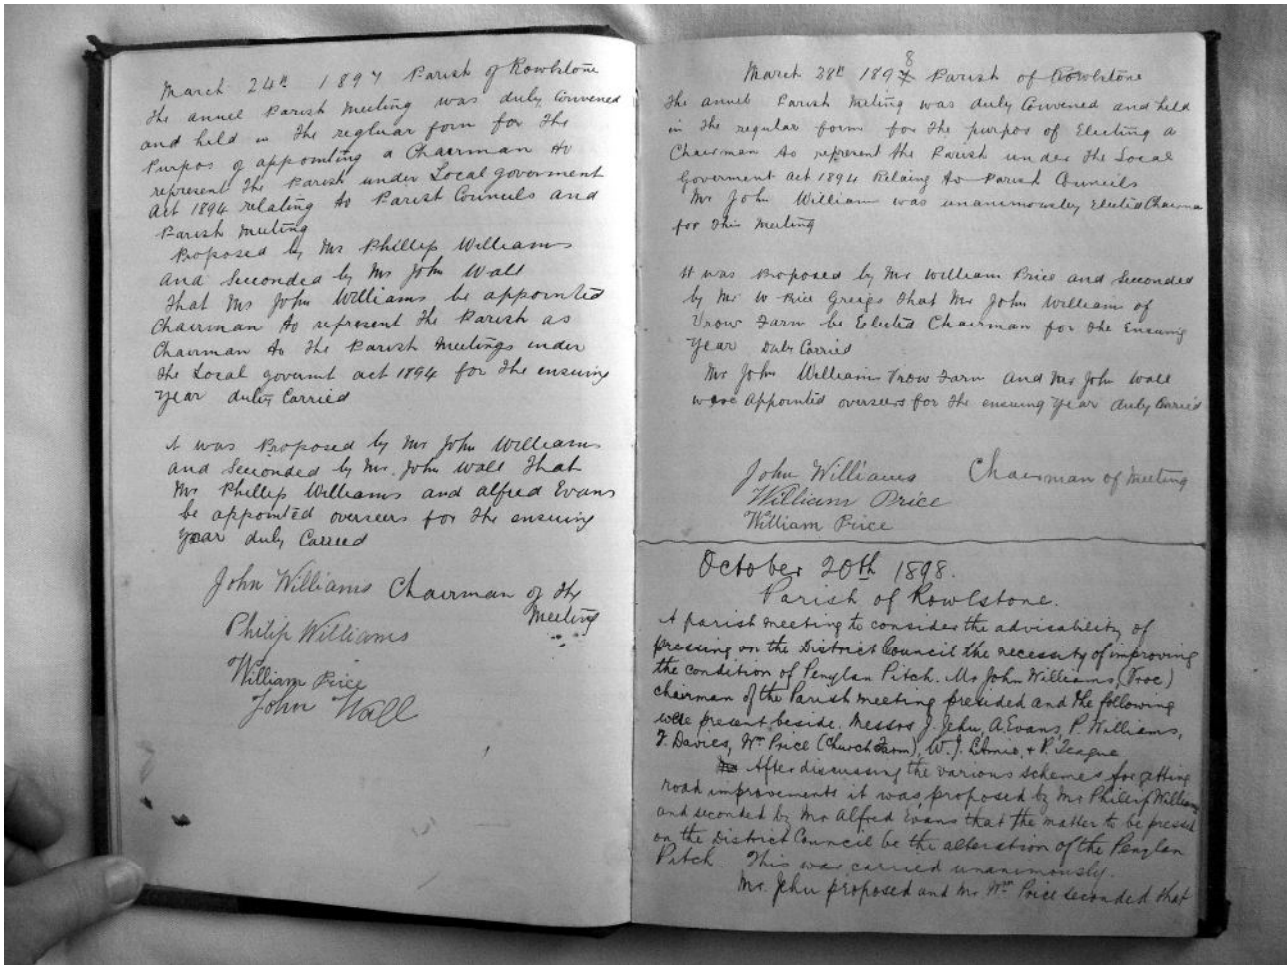 March 24th 1897 Parish of Rowlstone
The annuel Parish Meeting was duly Convened
and held in the regluar form for the
Purpos of appointing a Chairman to
represent the Parish under Local goverment
Act 1894 relating to Parish Councils and
Parish Meeting
Proposed by Mr Phillip Williams
and Seconded by Mr John Wall
That Mr John Williams be appointed
Chairman to represent the Parish as
Chairman to the Parish Meetings under
the Local govermt act 1894 for the ensuing
year duly Carried
it was Proposed by Mr John Williams
and Seconded by Mr. John Wall That
Mr Phillip Williams and Alfred Evans
be appointed overseers for the ensuing
Year duly Carried
John Williams Chairman of the
Meeting
Philip Williams
William Price
John Wall
March 28th 1898 Parish of Rowlstone
The annuel Parish Meting was duly Convened and held
in the regular form for the purpos of Electing a
Chairman to represent the Parish under the Local
Goverment act 1894 Relaing to Parish Councils
Mr John William was unanimously Elected Chairma
for this Meeting
It was Proposed by Mr William Price and Seconded
by Mr W Price that Mr John William of
Trow Farm be Elected Chairman for the Ensuing
Year Duly Carried
Mr John Williams Trow Farm and Mr John Wall
were appointed overseers for the ensuing Year duly Carried
John Williams Chairman of Meeting
William Price
William Price
October 20th 1898.
Parish of Rowlstone.
A parish meeting to consider the advisability of
pressing on the District Council the necessity of improving
the condition of Penylan Pitch. Mr John Williams, (Troe)
chairman of the Parish meeting presided and the following
were present beside. Messrs J. Jehu, A. Evans, P. Williams,
T. Davies, Wm Price (Church Farm), W. J. + P. Teague
After discussing the various schemes for getting
road improvements it was proposed by Mr Phillip Williams
and seconded by Mr Alfred Evans that the matter to be pressed
on the District Council be the alteration of the Penylan
Pitch This was carried unanimously.
Mr. Jehu proposed and Mr Wm Price seconded that